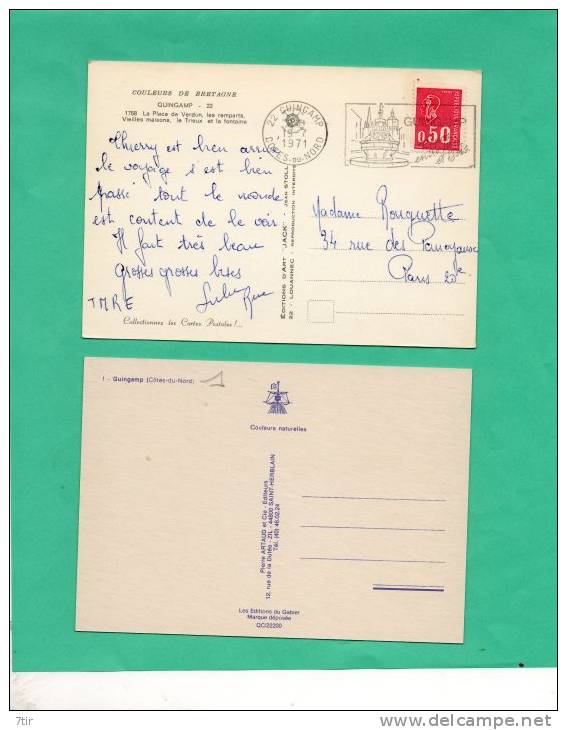 COULEURS DE BRETAGNE
GUINGAMP - 22
1758 La Place de Verdun, les remparts,
Vieilles maisons, le Trieux et la fontaine
Thierry est bien arrivé
le voyage s'est bien
passé tout le monde
est content de le voir
Il fait très beau
grosses grosses bises
TMRE
Collectionnez les Cartes Postales !...
22 GUINGAMP
1971
CÔTES-DU-NORD
GUINGAMP
REPUBLIQUE FRANÇAISE
0,50
ÉDITIONS D'ART "JACK"
22 - LOUANNEC - REPRODUCTION INTERDITE
Madame Rouquette
34 rue des
Paris 20e
1 - Guingamp (Côtes-du-Nord)
1
Couleurs naturelles
Pierre ARTAUD et Cie - Éditeurs
12, rue de la Dutée - ZIL - 44800 SAINT-HERBLAIN
Tél. (40) 46.02.24
Les Éditions du Gabier
Marque déposée
QC/22200
7tir
www.delcampe.net